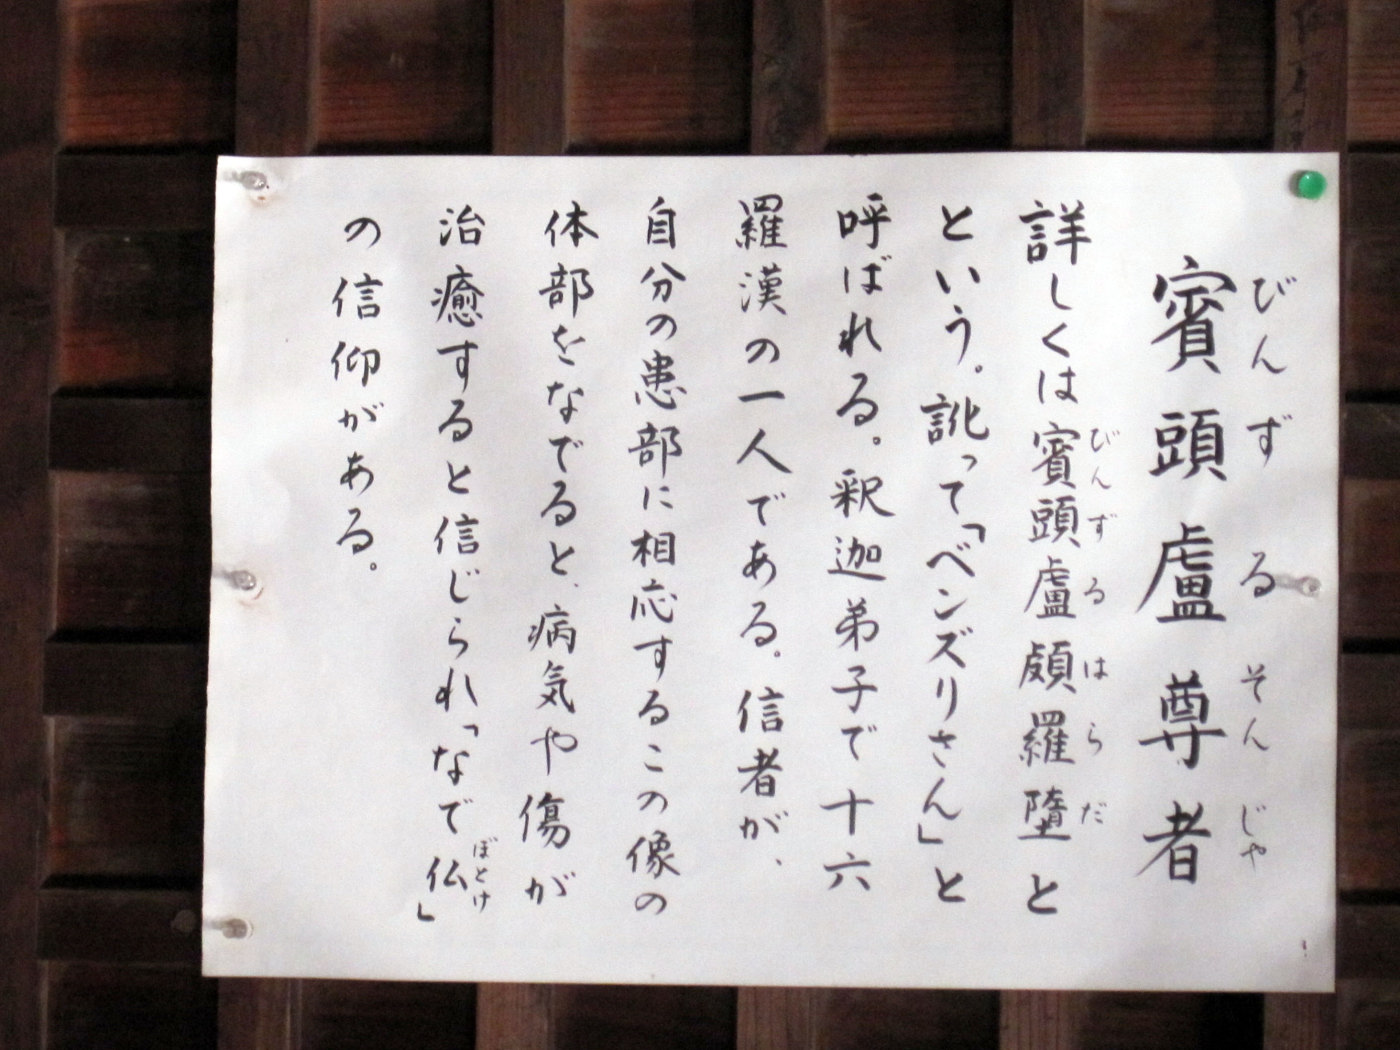 賓頭盧尊者
びんずるそんじゃ
詳しくは賓頭盧頗羅墮と
びんずるはらだ
という。訛って「ベンズリさん」と
呼ばれる。釈迦弟子で十六
羅漢の一人である。信者が、
自分の患部に相応するこの像の
体部をなでると、病気や傷が
治癒すると信じられ「なで仏」
ぼとけ
の信仰がある。